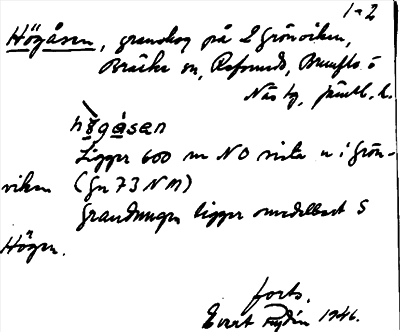 1-2
Högåsen, granskog på L Grönviken,
Bräcke sn, Refsunds, Brunflo o
Näs tg, Jämtl. l.
hø̀gåsan
Ligger 600 m NO sista n i Grön-
viken (Gn 73 NM)
Grandungen ligger omedelbart S
Högen.
forts.
Evert Rydén 1946.